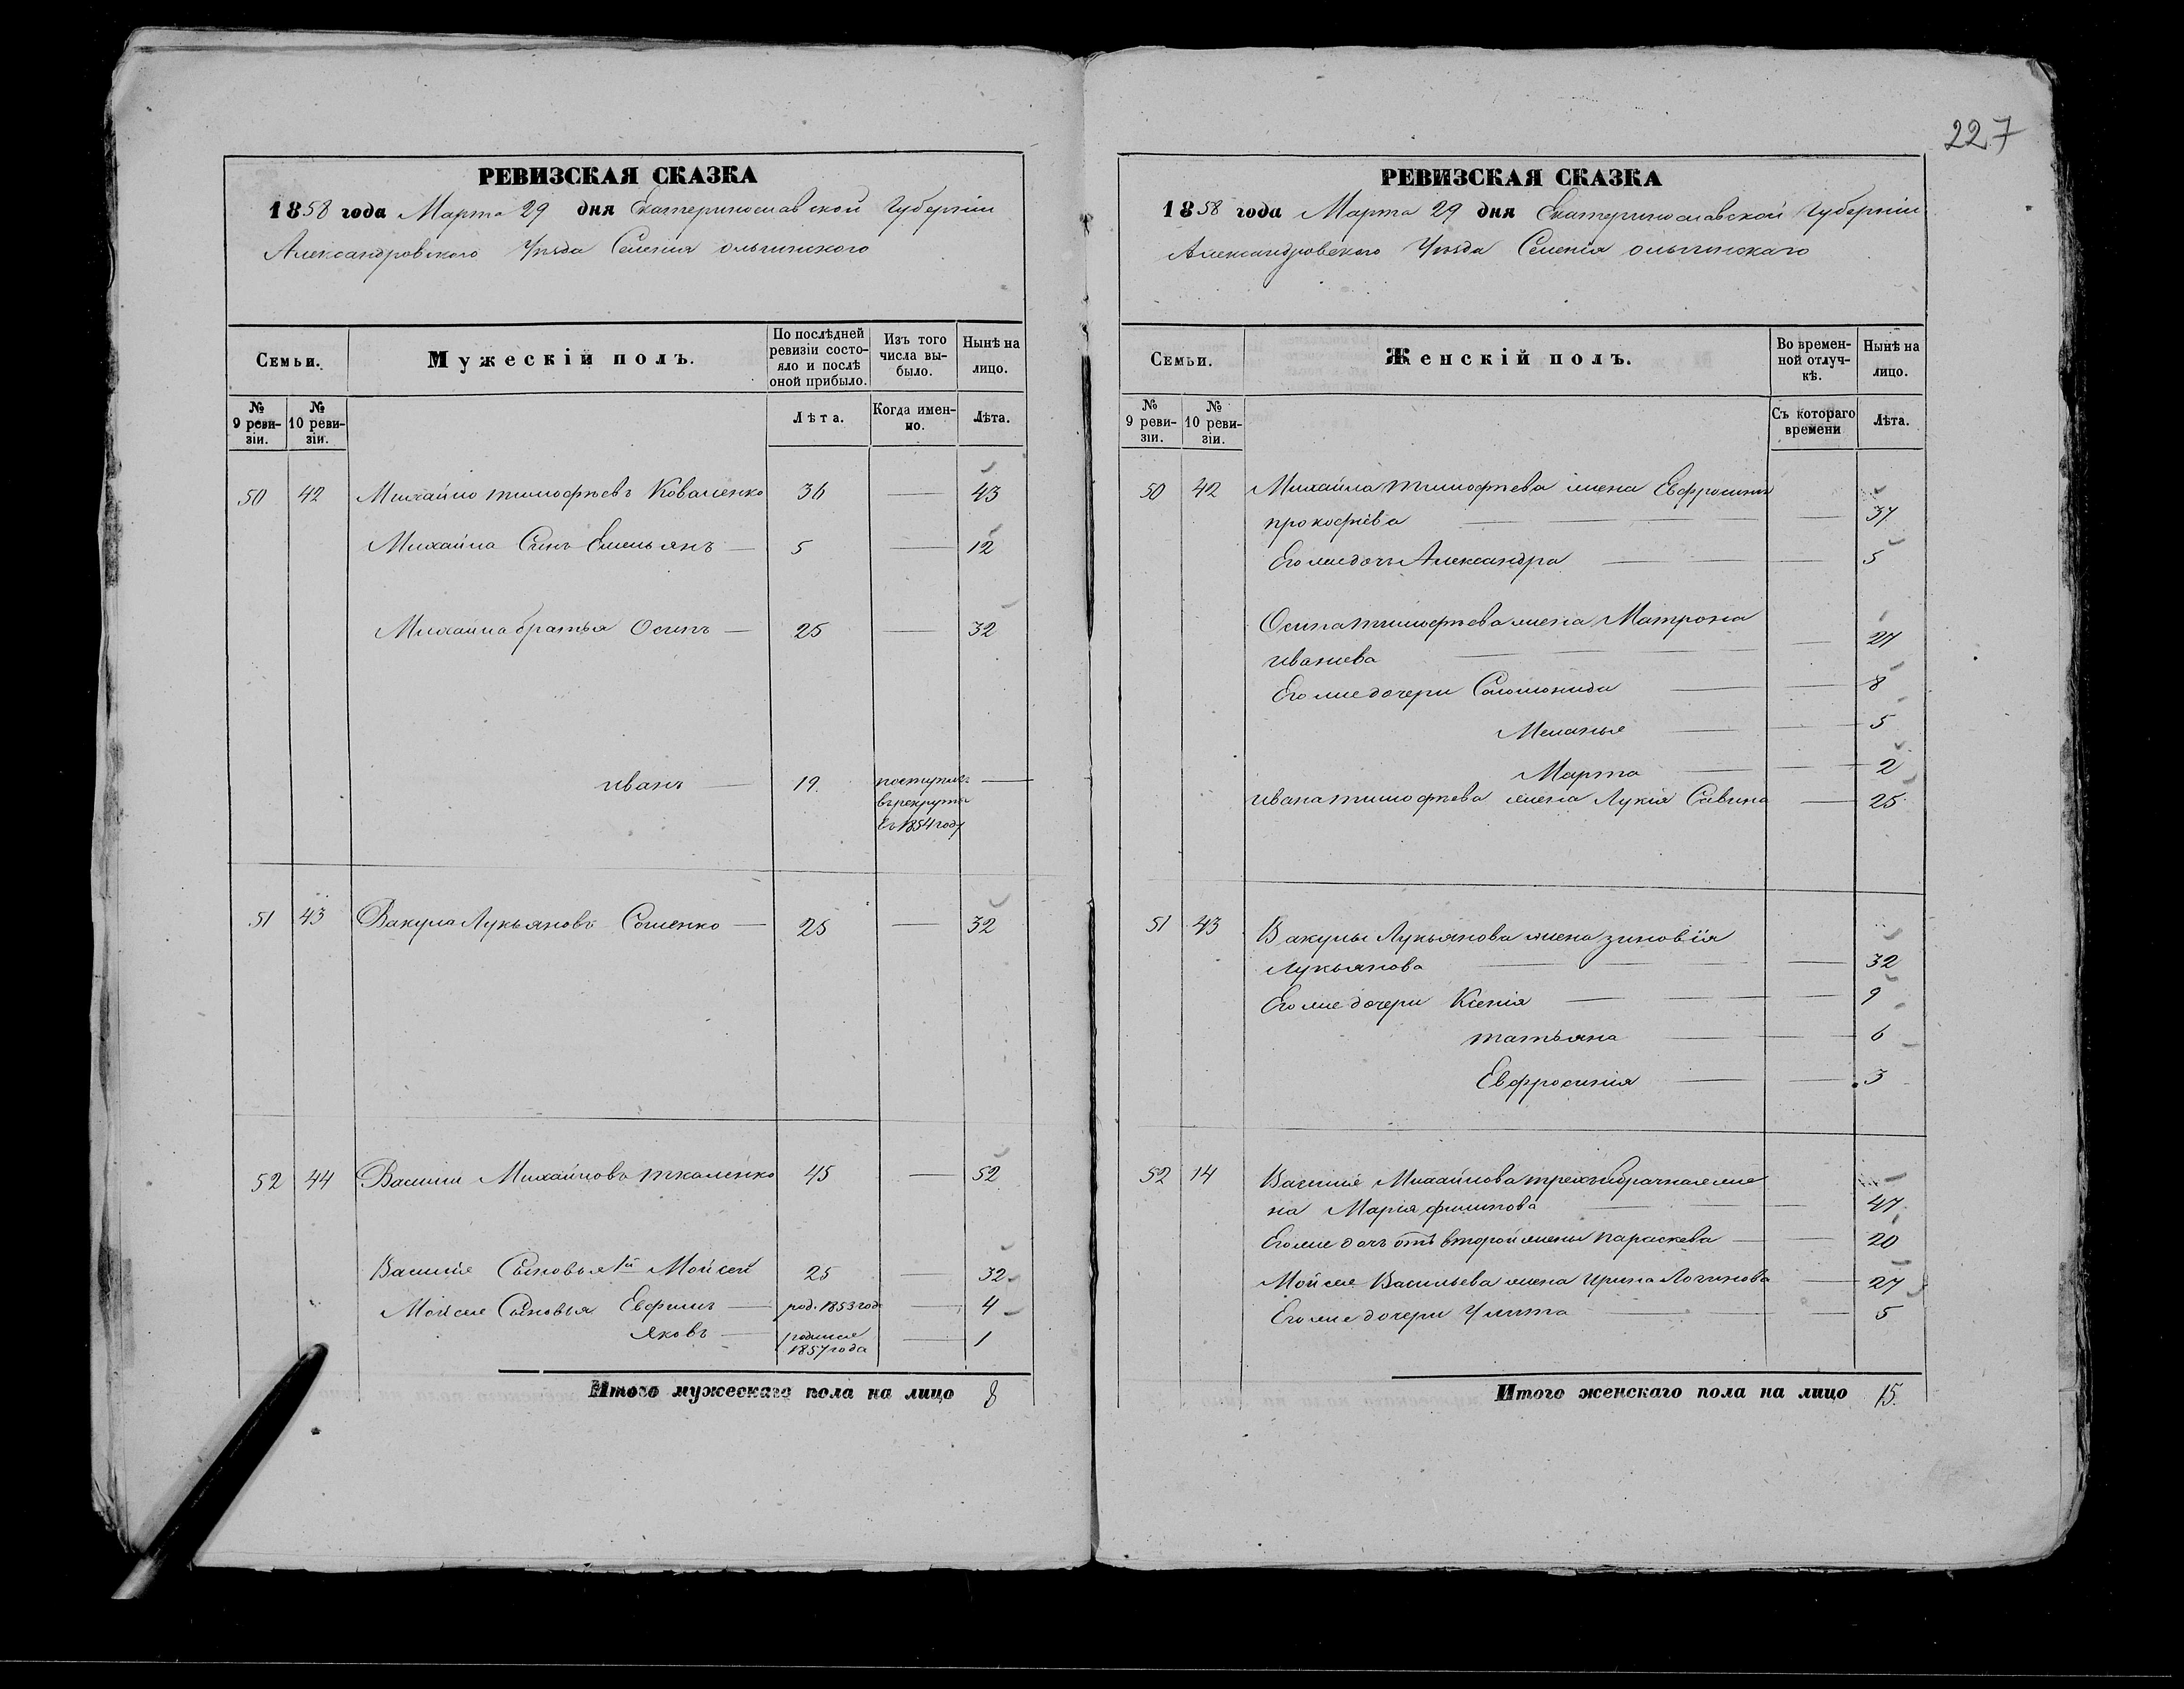 227
РЕВИЗСКАЯ СКАЗКА
1858 года Марта 29 дня Екатеринославской Губерніи
Александровского Уѣзда Селенія ольгинского
Семьи.
Мужескій полъ.
По послѣдней ревизіи состояло и послѣ оной прибыло.
Изъ того числа выбыло.
Нынѣ на лицо.
№ 9 ревизіи.
№ 10 ревизіи.
Лѣта.
Когда именно.
Лѣта.
50 42 Михайло тимофѣевъ Коваленко 36 — 43
Михайла Сынъ Емельянъ — 5 — 12
Михайла братья Осипъ — 25 — 32
иванъ — 19. поступилъ —
въ рекруты
въ 1854 году
51 43 Вакула Лукьяновъ Сошенко — 25 — 32
52 44 Василій Михайловъ ткаленко 45 — 52
Василія Сыновья 1й Мойсей 25 — 32
Мойсея Сыновья Евфимъ — род. 1853 год — 4
Яковъ — родился — 1
1857 года
Итого мужескаго пола на лицо 8
РЕВИЗСКАЯ СКАЗКА
1858 года Марта 29 дня Екатеринославской Губерніи
Александровского Уѣзда Селенія ольгинскаго
Семьи.
Женскій полъ.
Во временной отлучкѣ.
Нынѣ на лицо.
№ 9 ревизіи.
№ 10 ревизіи.
Съ котораго времени
Лѣта.
50 42 Михайла тимофѣева жена Евфросинія
прокофіева — 37
Его же дочь Александра — 5
Осипа тимофѣева жена Матрона
иванева — 27
Его же дочери Соломонида — 8
Меланья — 5
Марта — 2
ивана тимофѣева жена Лукія Савина — 25
51 43 Вакулы Лукьянова жена зиновія
Лукьянова — 32
Его же дочери Ксенія — 9
татьяна — 6
Евфросинія — 3
52 14 Василія Михайлова третьебрачная же
на Марія филипова — 47
Его же дочь отъ второй жены параскева — 20
Мойсея Васильева жена Ирина Логинова — 27
Его же дочери Улита — 5
Итого женскаго пола на лицо 15.